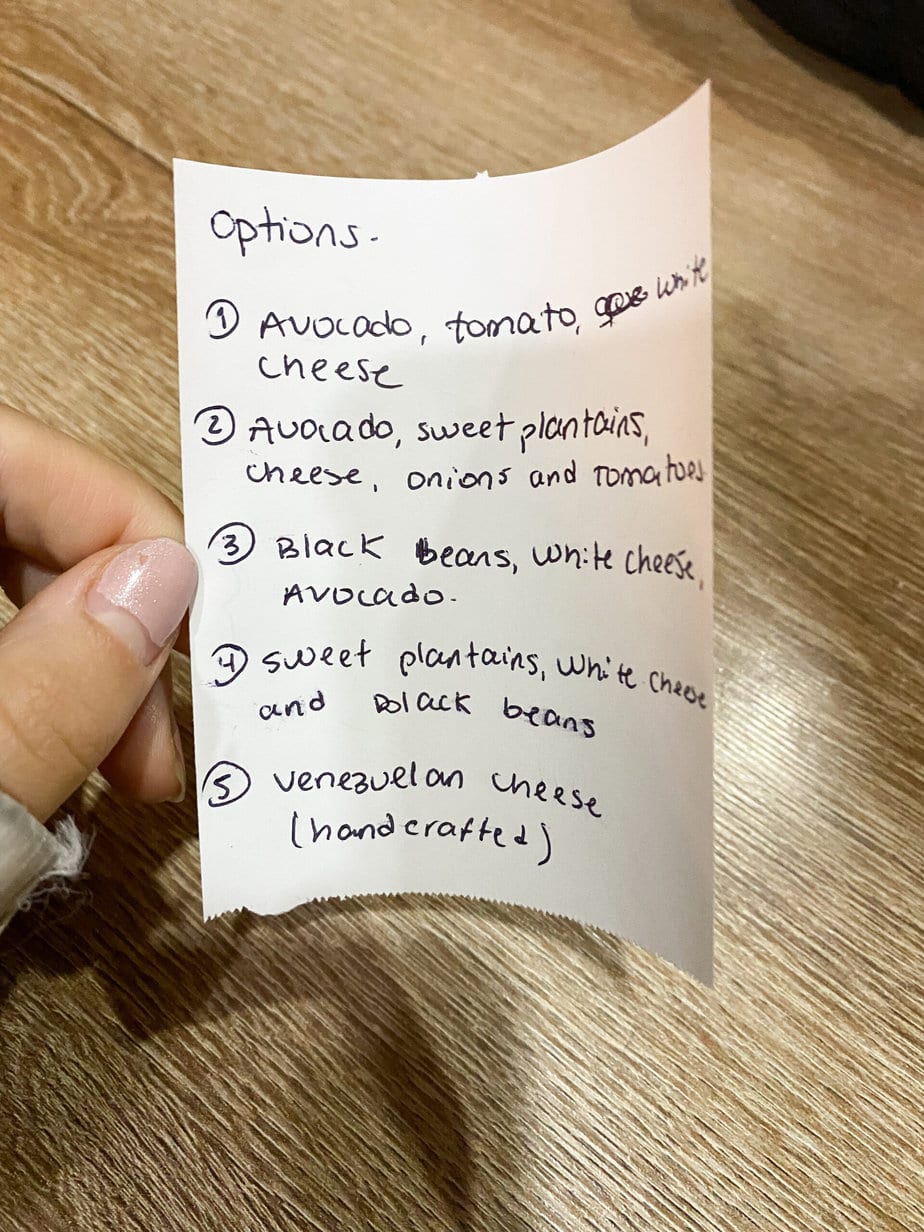 Options.
① Avocado, tomato, white
cheese
② Avocado, sweet plantains,
cheese, onions and tomatoes
③ Black beans, white cheese,
Avocado.
④ sweet plantains, white cheese
and Black beans
⑤ venezuelan cheese
(handcrafted)